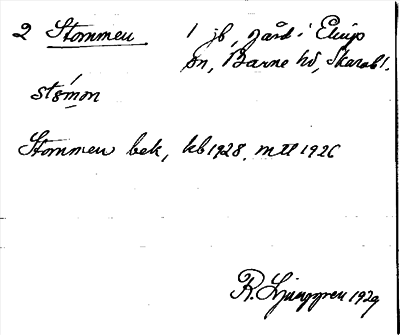 2 Stommen 1 jb, gård i Elings
sn, Barne hd, Skarab l.
stɷ́mon
Stommen bek, kb 1928, mtl 1926
R. Ljunggren 1929